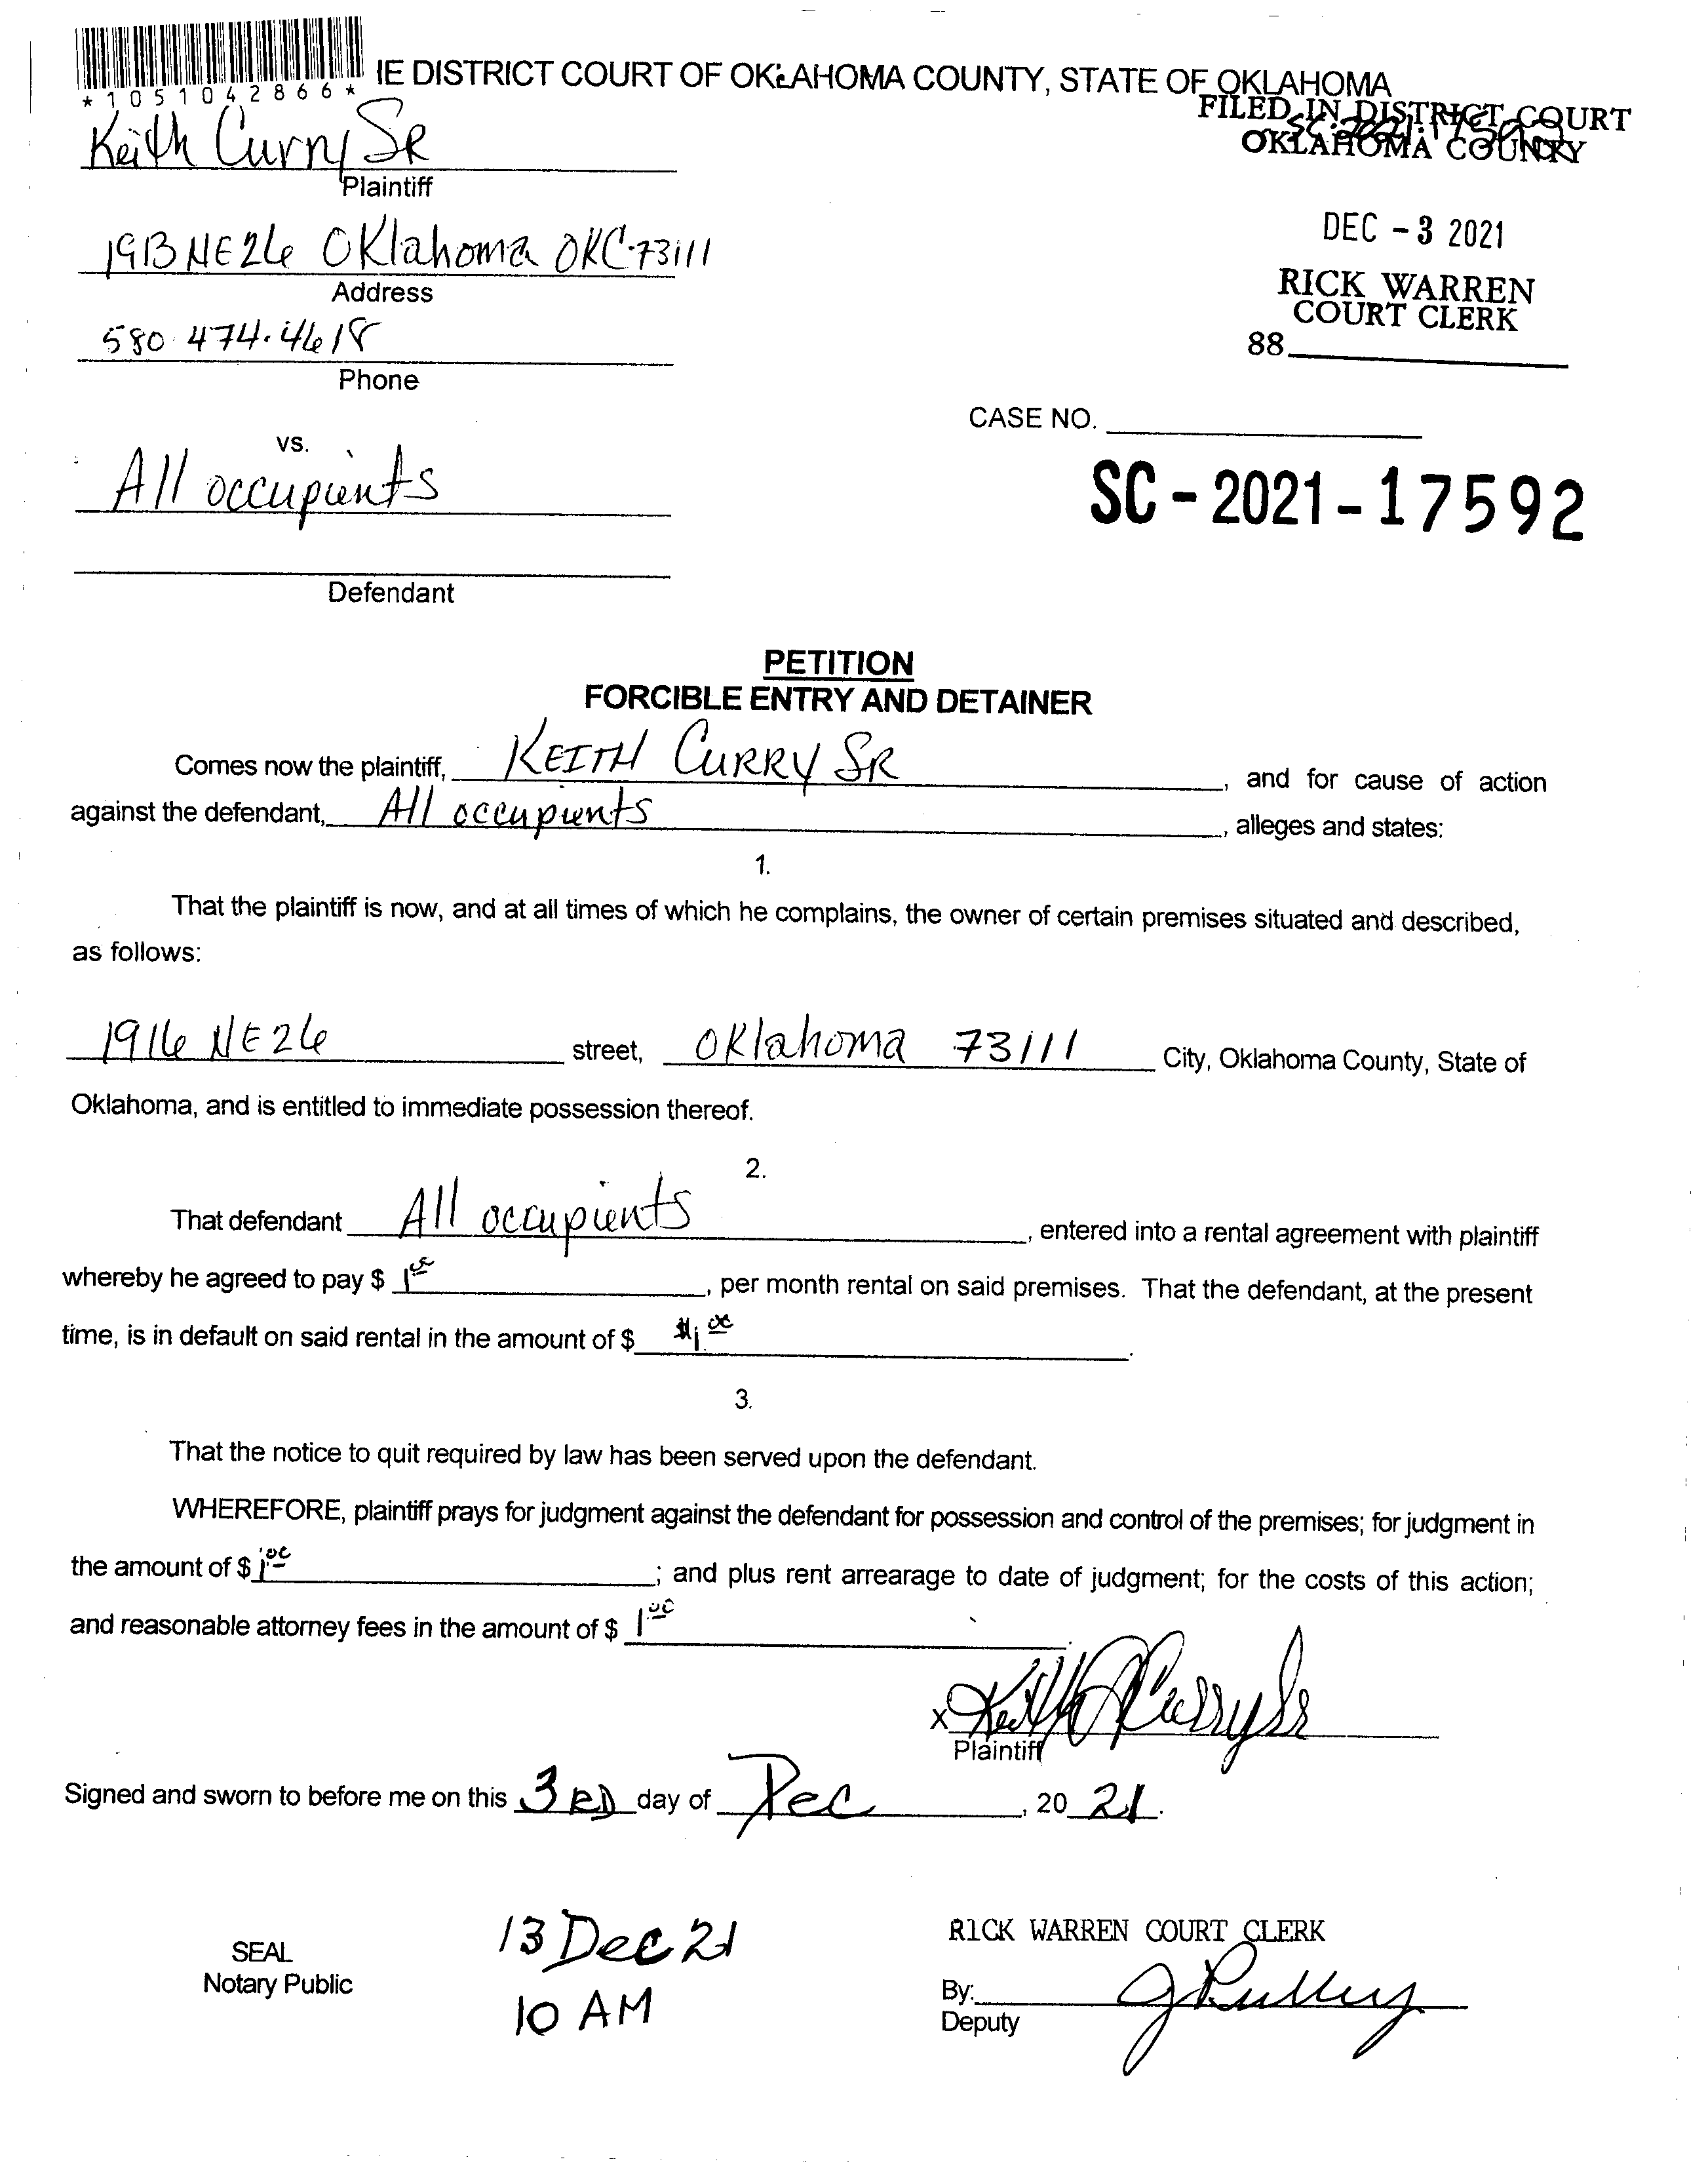 *1051042866*
IE DISTRICT COURT OF OKLAHOMA COUNTY, STATE OF OKLAHOMA
FILED IN DISTRICT COURT
OKLAHOMA COUNTY
Keith Curry SR
Plaintiff
1913 NE 26 OKlahoma OKC 73111
Address
DEC - 3 2021
RICK WARREN
COURT CLERK
88
580 474.4618
Phone
CASE NO.
vs.
All occupients
SC - 2021 - 17592
Defendant
PETITION
FORCIBLE ENTRY AND DETAINER
Comes now the plaintiff, KEITH CURRY SR, and for cause of action
against the defendant, All occupients, alleges and states:
1.
That the plaintiff is now, and at all times of which he complains, the owner of certain premises situated and described,
as follows:
1916 NE 26 street, OKlahoma 73111 City, Oklahoma County, State of
Oklahoma, and is entitled to immediate possession thereof.
2.
That defendant All occupients, entered into a rental agreement with plaintiff
whereby he agreed to pay $ 1, per month rental on said premises. That the defendant, at the present
time, is in default on said rental in the amount of $ $1.00.
3.
That the notice to quit required by law has been served upon the defendant.
WHEREFORE, plaintiff prays for judgment against the defendant for possession and control of the premises; for judgment in
the amount of $ 1.00; and plus rent arrearage to date of judgment; for the costs of this action;
and reasonable attorney fees in the amount of $ 1.00.
x Keith Curry Sr
Plaintiff
Signed and sworn to before me on this 3RD day of Dec, 20 21.
13 Dec 21
10 AM
SEAL
Notary Public
RICK WARREN COURT CLERK
By:
Deputy